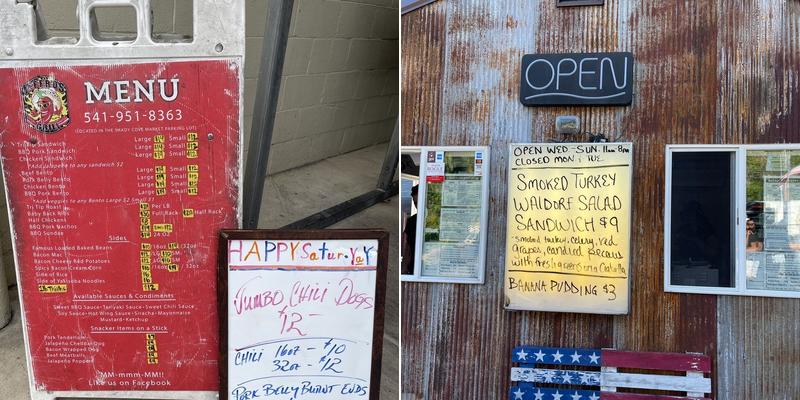 MENU
541-951-8363
(LOCATED IN THE BRADY COVE MARKET PARKING LOT)
Large Small
BBQ Pork Sandwich Large Small
Chicken Sandwich Large Small
*Add Jalapeno to any sandwich $2
Beef Bento Large Small
Pork Bento Large Small
Chicken Bento Large Small
BBQ Pork Bento Large Small
*Add veggies to any Bento Large $2 Small $1
Tri Tip Roast Per LB
Baby Back Ribs Full Rack Half Rack
Half Chickens
BBQ Pork Nachos
BBQ Sundae 24 Oz
Sides
Famous Loaded Baked Beans 16oz 32oz
Bacon Mac
Bacon Cheesy Red Potatoes
Spicy Bacon Cream Corn 16oz 32oz
Side of Rice
Side of Yakisoba Noodles
Available Sauces & Condiments
Sweet BBQ Sauce-Teriyaki Sauce-Sweet Chili Sauce
Soy Sauce-Hot Wing Sauce-Sriracha-Mayonnaise
Mustard-Ketchup
Snacker Items on a Stick
Pork Tenderloin
Jalapeño Cheddar Dog
Bacon Wrapped Dog
Beef Meatballs
Jalapeño Poppers
MM-mmm-MM!!
Like us on Facebook
HAPPY Satur-Yay
JUMBO CHILI DOGS
$12-
CHILI 16oz - $10
32oz - $12
PORK BELLY BURNT ENDS
OPEN
OPEN WED-SUN. 11am 8pm
CLOSED MON & TUE
SMOKED TURKEY
WALDORF SALAD
SANDWICH $9
smoked turkey, celery, red
grapes, candied pecans
with fresh greens on a
BANNA PUDDING $3